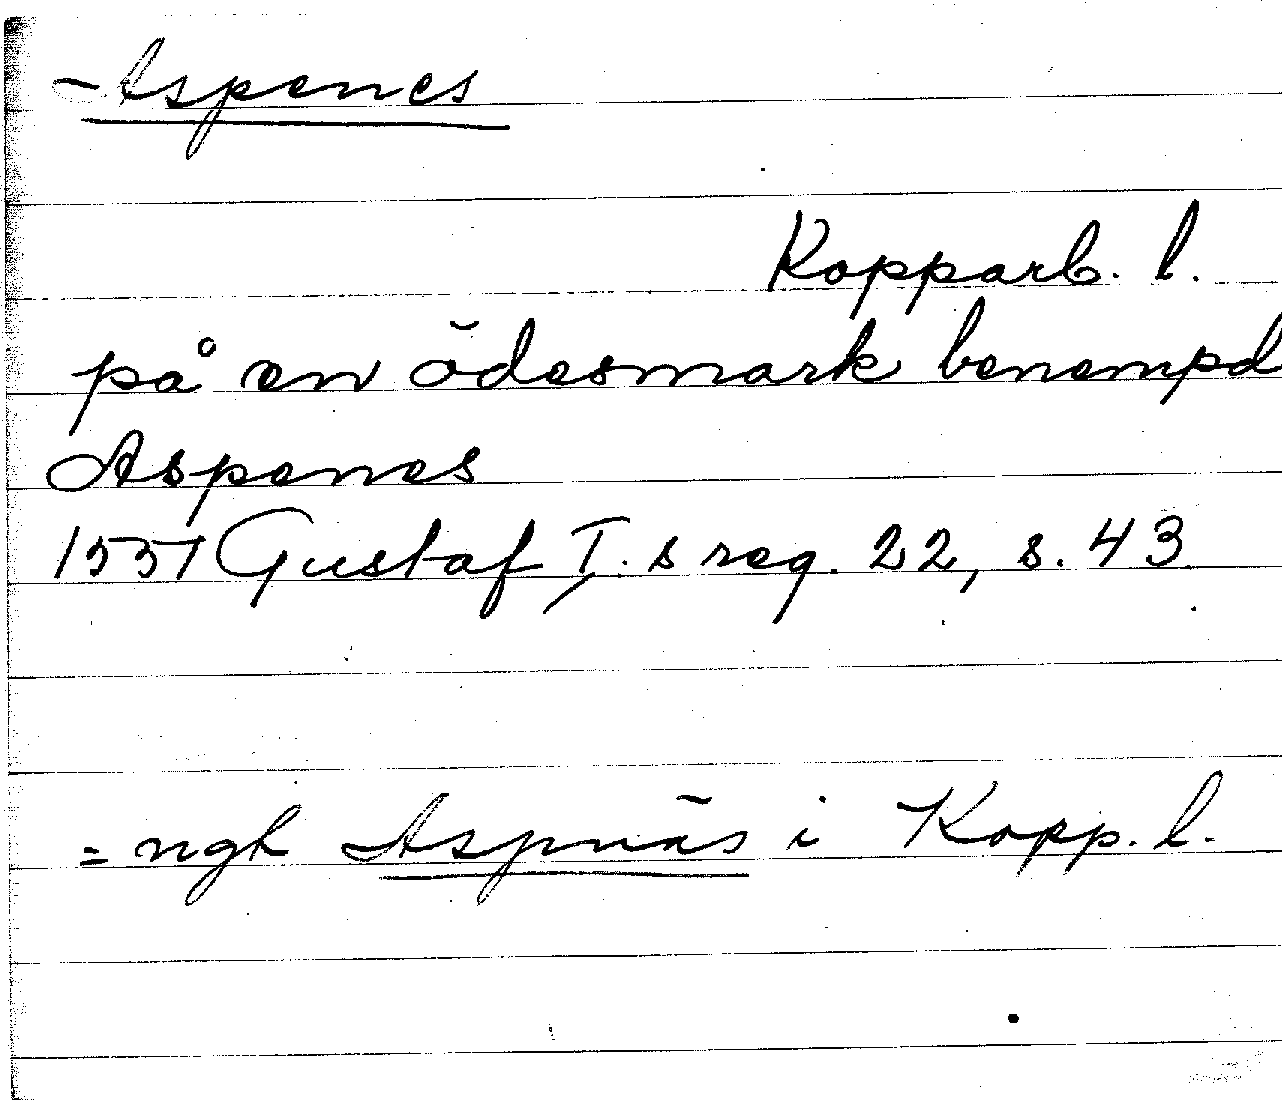 Aspenes
Kopparb. l.
på en ödesmark benempd
Aspenes
1551 Gustaf I.s reg. 22, s. 43
= ngt Aspnäs i Kopp. l.